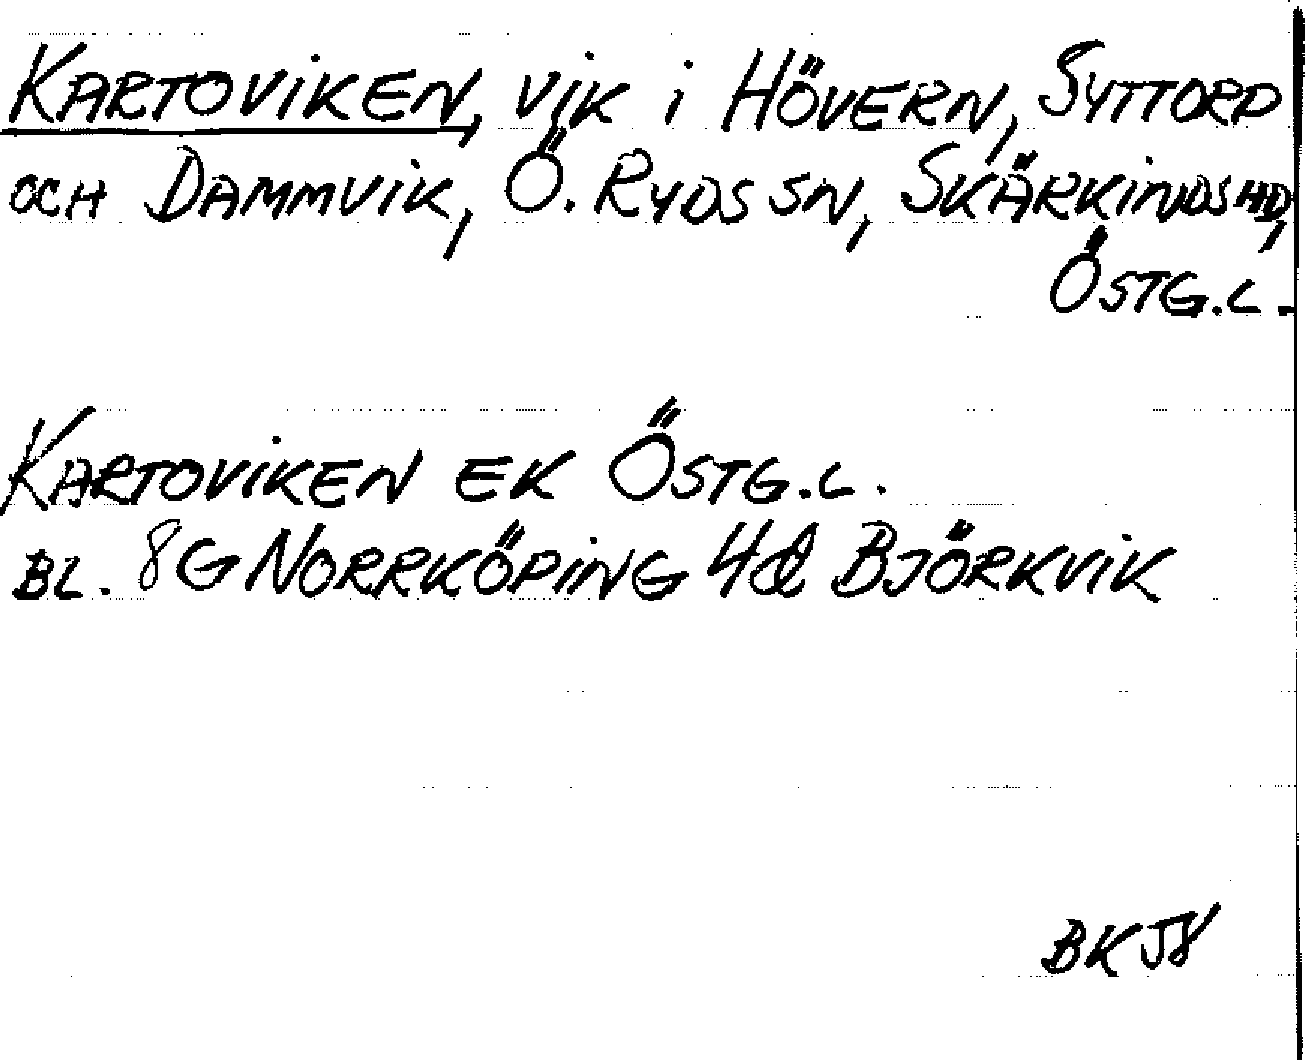 KARTOVIKEN, VIK I HÖVERN, SYTTORP
OCH DAMMVIK, Ö. RYDS SN, SKÄRKINDS HD,
ÖSTG.L.
KARTOVIKEN EK ÖSTG.L.
BL. 8G NORRKÖPING 4d BJÖRKVIK
BK